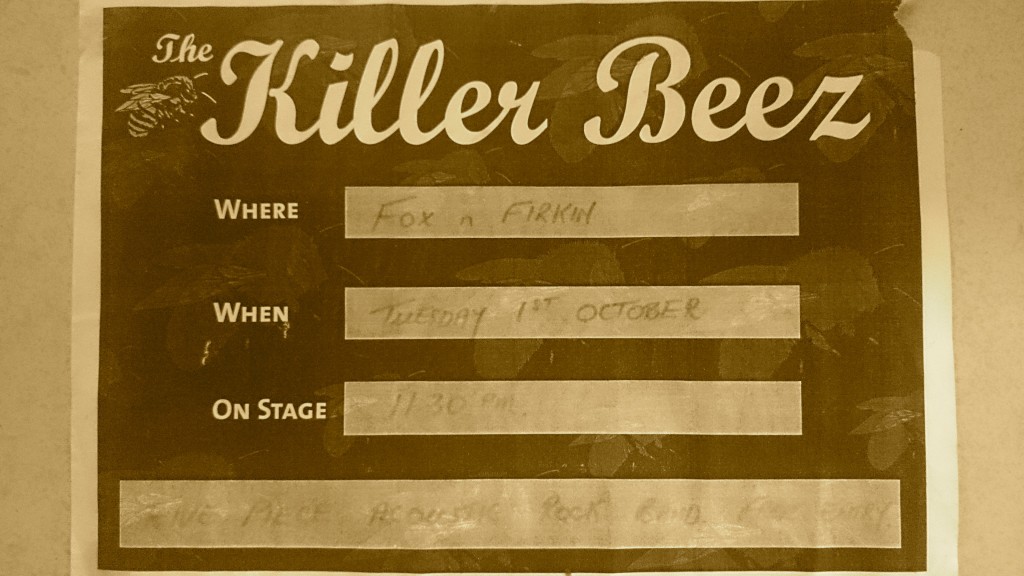 The Killer Beez
WHERE FOX n FIRKIN
WHEN TUESDAY 1ST OCTOBER
ON STAGE 11 30 PM.
FIVE PIECE ACOUSTIC ROCK BAND. FREE ENTRY.